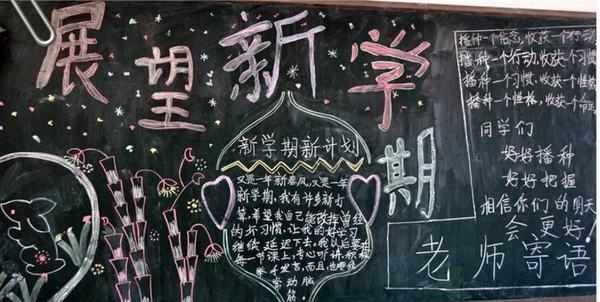 展望新学期
新学期新计划
又是一年新春风,又是一年
新学期,我有许多新打
算,希望我自己能改掉曾经
的坏习惯,让我的好学习
继续延迟下去,我以后要在
每一节课上,专心听讲,积极
举手发言,而且也要经
常动脑
筋
播种一个信念,收获一个行动
播种一个行动,收获一个习惯
播种一个习惯,收获一个性格
播种一个性格,收获一个命运
同学们
好好播种
好好把握
相信你们的明天
会更好!
老师寄语